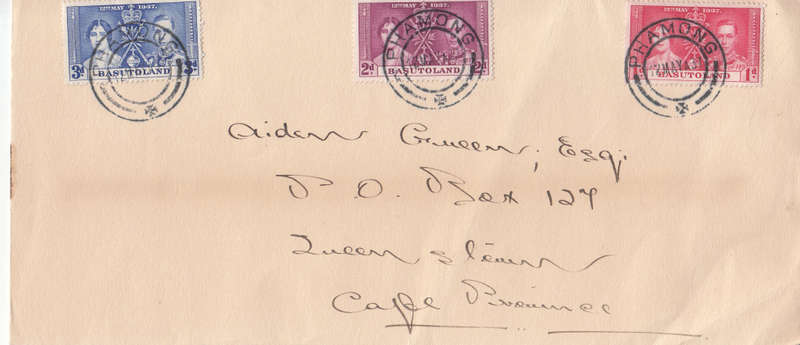 12TH MAY 1937.
3d BASUTOLAND 3d
PHAMONG
12TH MAY 1937.
2d BASUTOLAND 2d
PHAMONG
12TH MAY 1937.
BASUTOLAND 1d
PHAMONG
Aiden Green, Esq.
P.O. Box 127
Queenstown
Cape Province